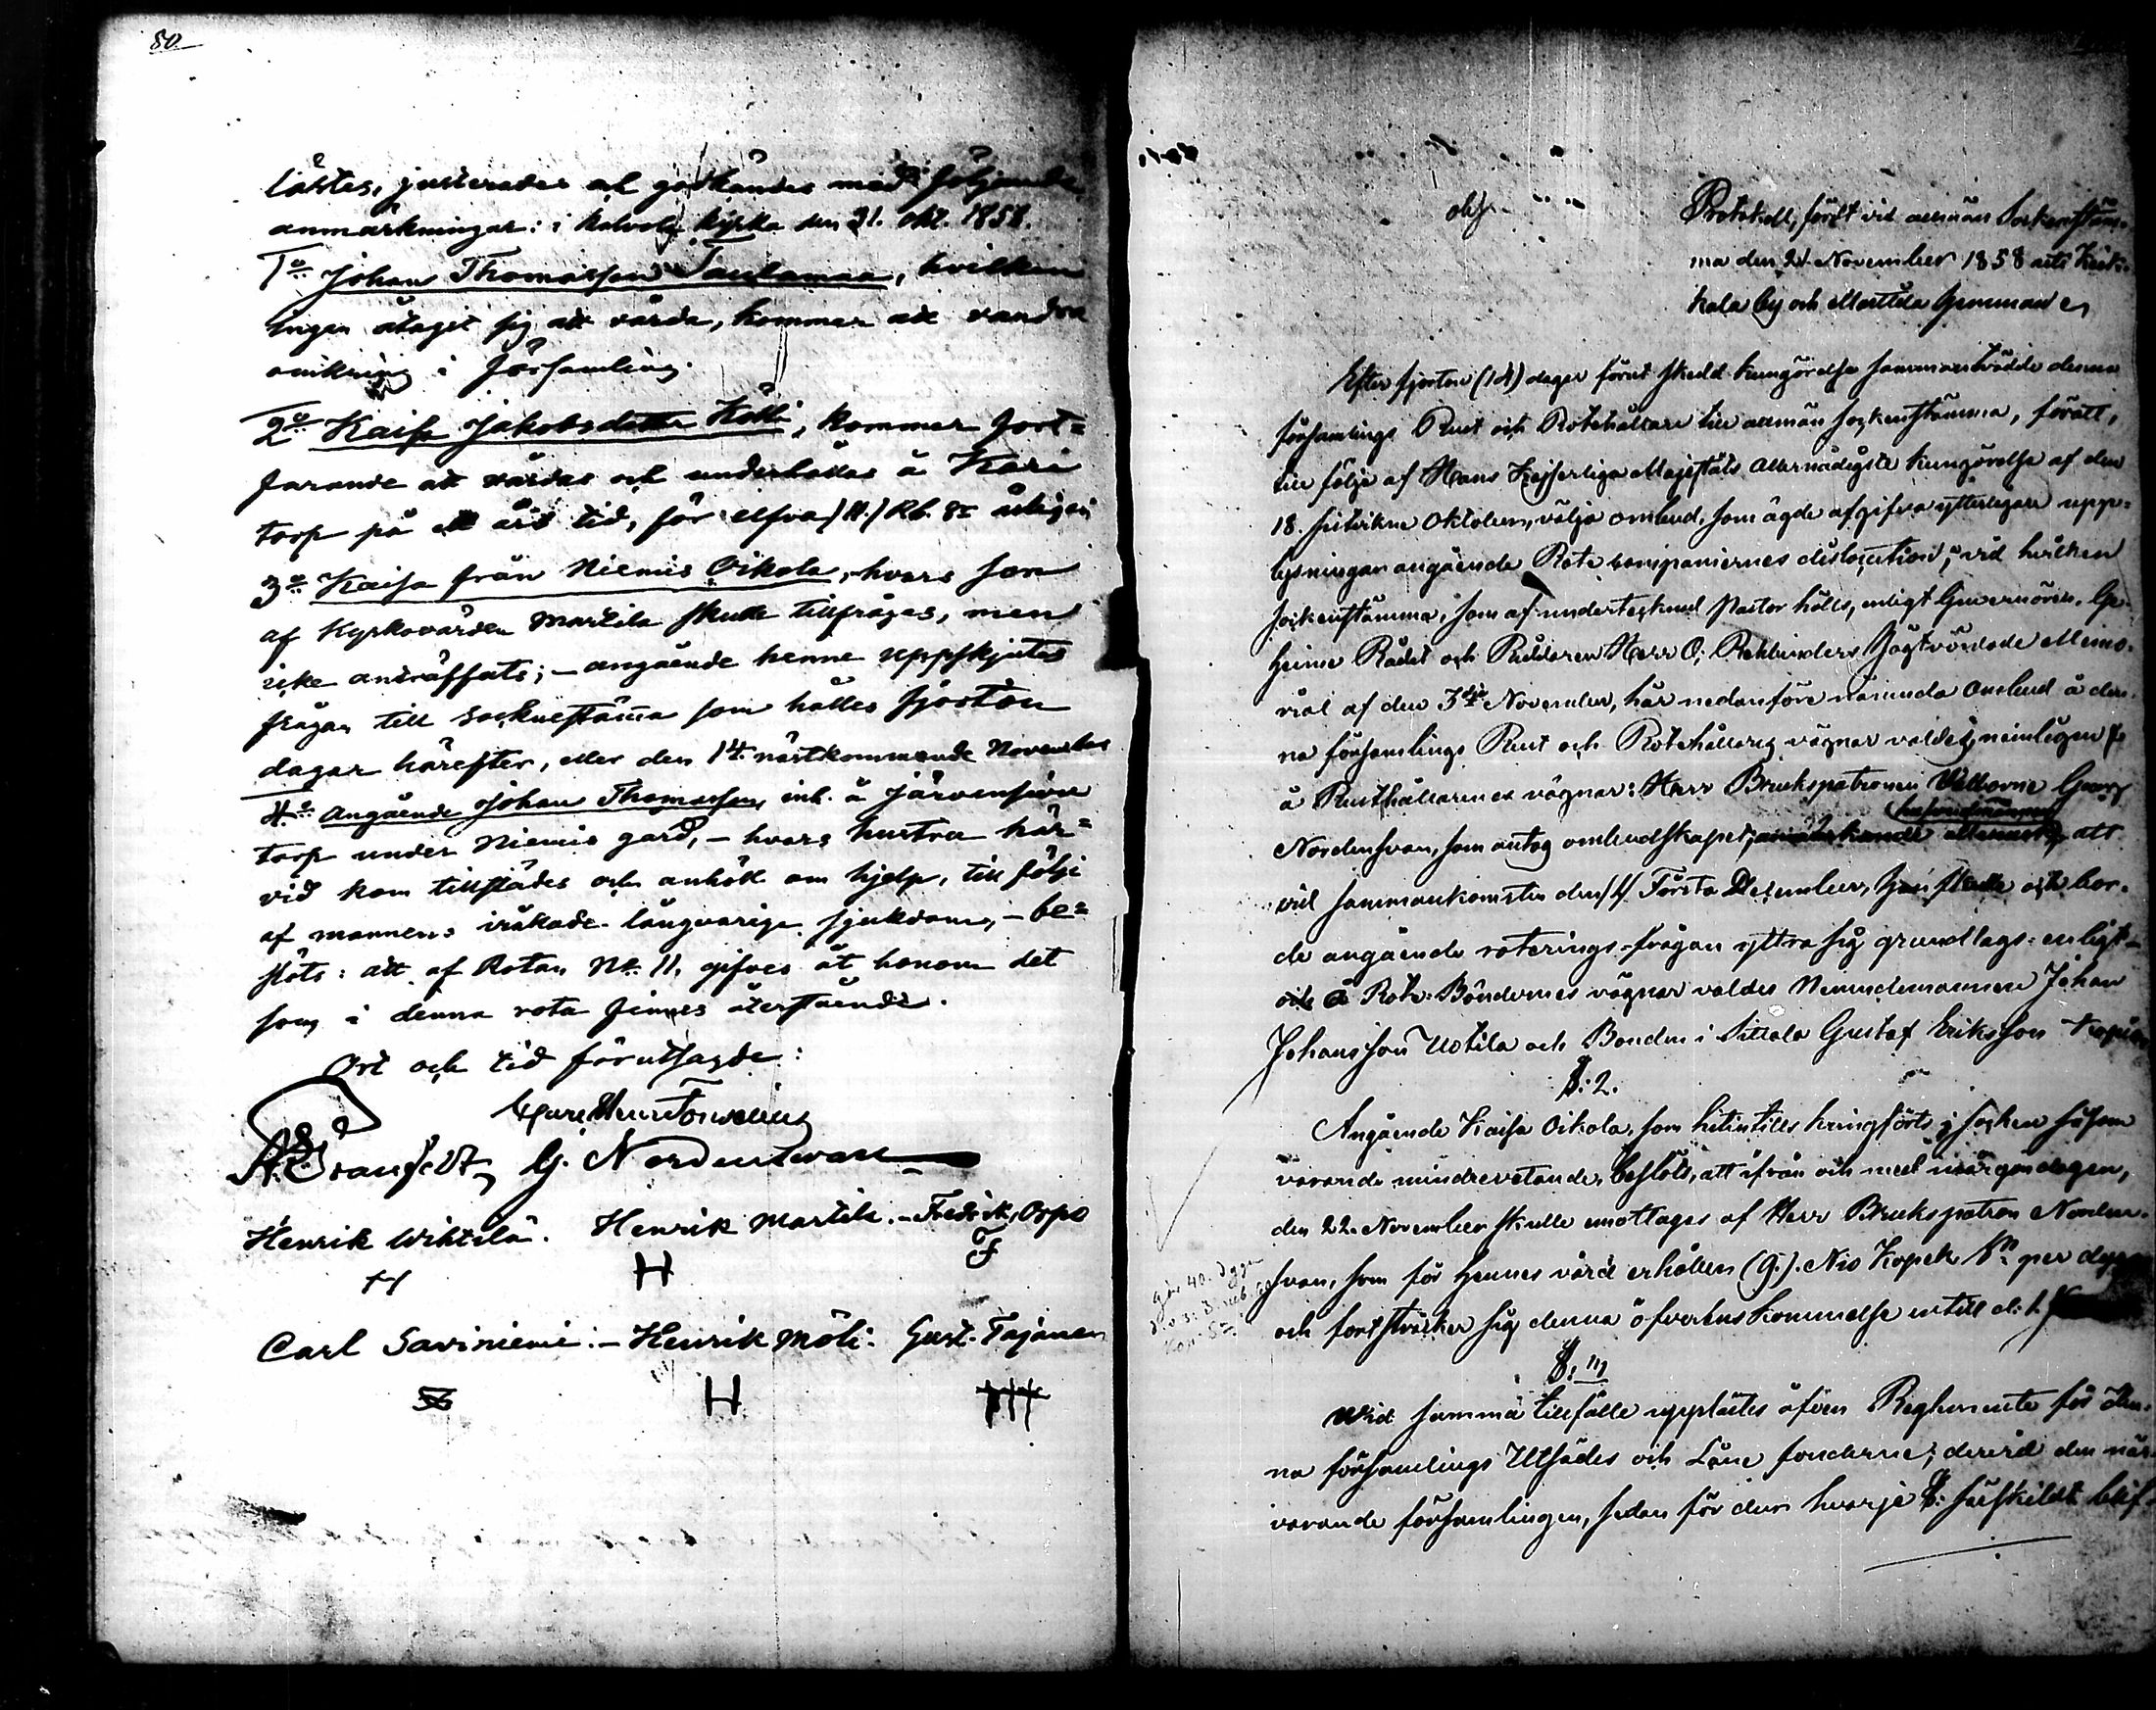 80
lästes, justerades och godkändes med följande
anmärkningar: i Kalvola kyrka den 31. Okt. 1858.
1o Johan Thomasson Taulamaa, hvilken
ingen åtagit sig att vårda, kommer att vandra
omkring i församling.
2o Kaisa Jakobsdotter Kölli, kommer fort=
farande att vårdas och underhållas å Kari
torp på ett års tid, för elfva (11.) Rb. Sr årligen
3o Kaisa från Niemis Oikola, hvars son
af Kyrkovärden Martila skulle tillfrågas, men
icke anträffats; – angående henne uppskjutes
frågan till Sockenstämma som hålles fjorton
dagar härefter, eller den 14. nästkommande November
4o Angående Johan Thomasson, inh. å Järvensivu
torp under Niemis gård, – hvars hustru här=
vid kom tillstädes och anhöll om hjelp, till följe
af mannens iråkade långvariga sjukdom, – be=
slöts: att af Rotan No 11, gifves åt honom det
som i denna rota finnes återstående.
Ort och tid förutsagde:
G. Nordenswan
Henrik Wihtilä. Henrik Martila. – Fredrik Orpo
H H F
Carl Saviniemi: – Henrik Möli. Gust. Tajanen
H
Protokoll, fördt vid allmän Sockenstäm-
ma den 21 November 1858 uti Keik-
kala by och Martila hemman
Efter fjorton (14) dagar förut skedd kungörelse sammanträdde denna
församlings Rust och Rotehållare till allmän sockenstämma, för att,
till följe af Hans Kejserliga Majestäts Allernådigste kungörelse af den
18. sistvikne Oktober, välja ombud, som ägde afgifva ytterligare upp-
lysningar angående Rote kompaniernes dislocation; vid hvilken
sockenstämma, som af undertecknad Pastor hölls, enligt Guvernörens, Ge-
heime Rådet och Riddaren Herr O. Rehbinders Högtvördade Memo-
rial af den 3dje November, här nedanföre nämnda Ombud å den-
na församlings Rust och Rotehållares vägnar valdes, nämligen
å Rusthållarenes vägnar: Herr Brukspatronen Välborne Georg
Nordensvan, som antog ombudskapet, att
vid sammankomsten den (1) Första December, han skulle och bor-
de angående roterings-frågan yttra sig grundlags-enligt –
och å Rote-Böndernes vägnar valdes Nämndemannen Johan
Johansson Uotila och Bonden i Sittala Gustaf Eriksson
§. 2.
Angående Kaisa Oikola, som hitintills kringförts i socken såsom
varande mindrevetande, beslöts, att ifrån och med morgondagen,
den 22. November skulle emottages af Herr Brukspatron Norden-
svan, som för hennes vård erhåller (9.) Nio Kopek Sr per dygn
och fortsträcker sig denna öfverenskommelse intill d. 1.
§. 3
Wid samma tillfälle upplästes äfven Reglemente för den-
na församlings Utsädes och Låne fonderne; dervid den när-
varande församlingen, sedan för dem hvarje §: särskildt blif-